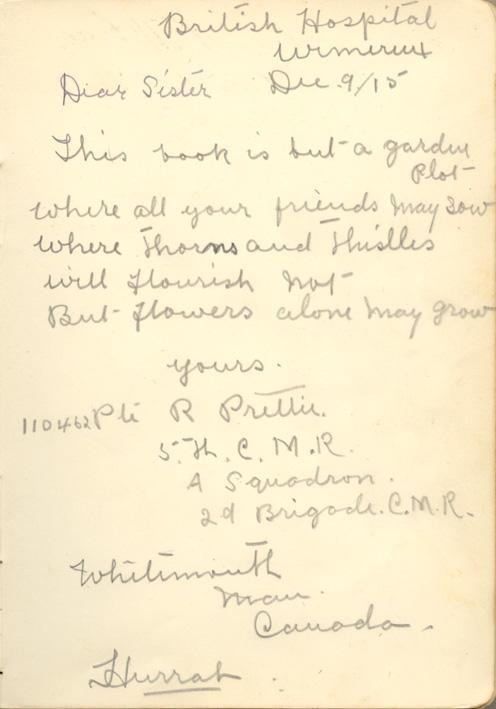 British Hospital
Wimereux
Dear Sister Dec. 9/15
This book is but a garden
Plot
Where all your friends may sow
where Thorns and Thistles
will flourish not
But flowers alone may grow
yours.
110462 Pte R Prettie.
5th. C. M. R.
A Squadron.
2d Brigade. C.M.R.
Whitemouth
Man.
Canada.
Hurrah.